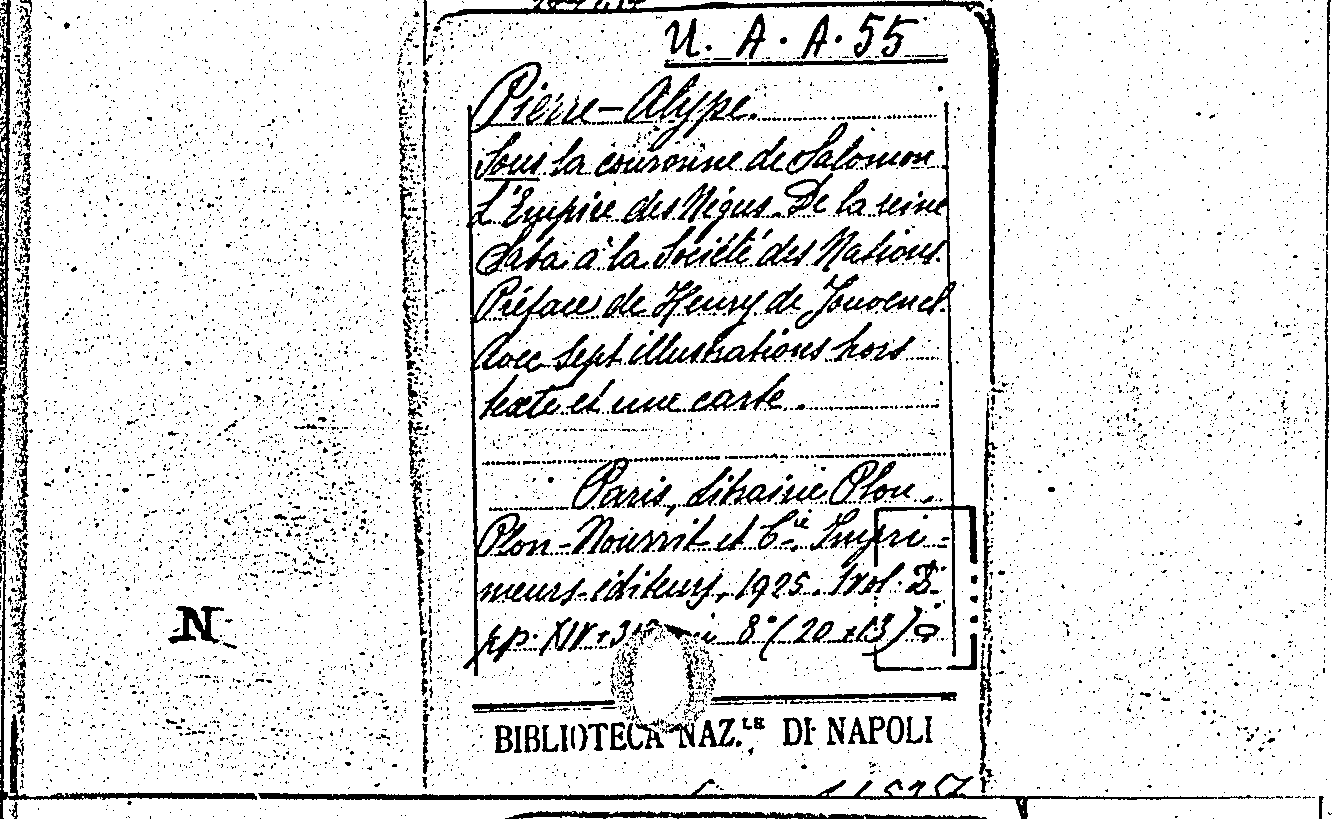 U. A. A. 55
Pierre-Alype.
Sous la couronne de Salomon
L'Empire des Négus. De la reine
Saba à la Société des Nations.
Préface de Henry de Jouvenel.
Avec sept illustrations hors
texte et une carte.
Paris, Librairie Plon.
Plon-Nourrit et Cie. Impri-
meurs-éditeurs, 1925. 1 vol.
pp. XIV + 8° (20 × 13)
N
BIBLIOTECA NAZ.LE DI NAPOLI